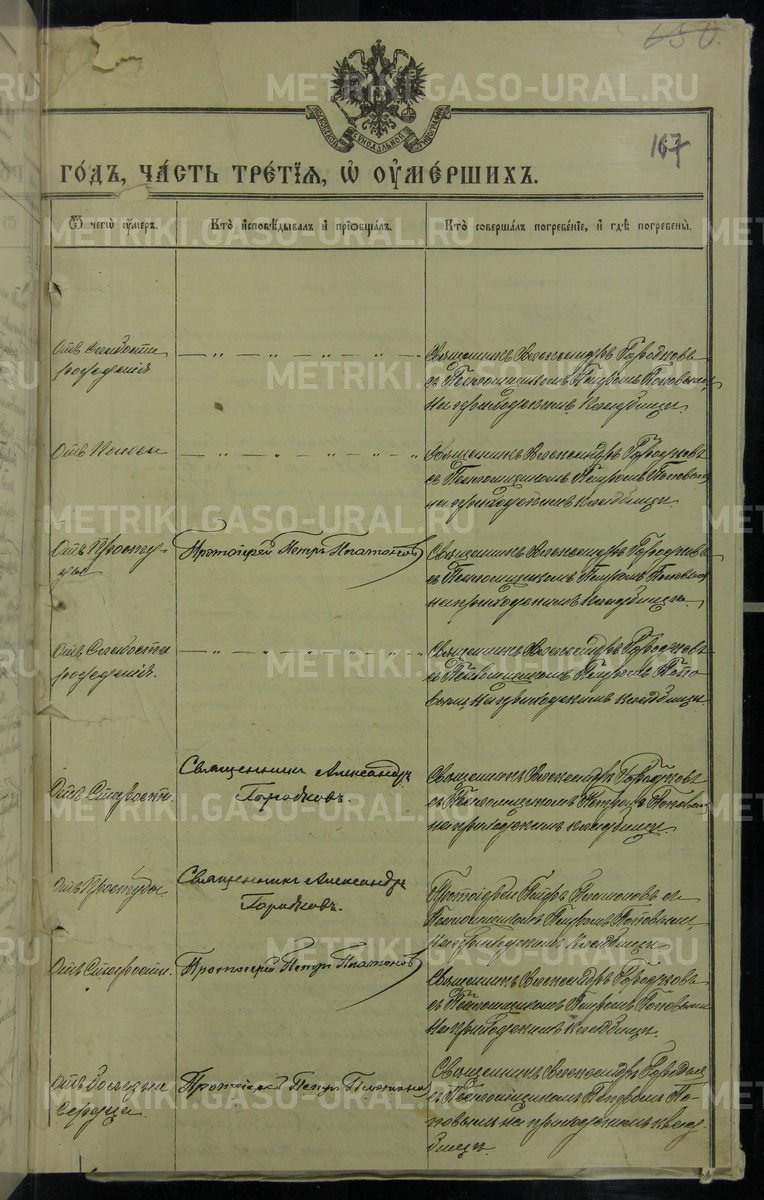 650.
167
МОСКОВСКОЙ СѴНОДАЛЬНОЙ ТИПОГРАФІИ
ГОДЪ, ЧАСТЬ ТРЕТІЯ, Ѡ ОУМЕРШИХЪ.
Ѿ чегѡ оумеръ.
Кто исповѣдывалъ и прїобщалъ.
Кто совершалъ погребеніе, и гдѣ погребены.
Отъ слабости
рожденія
Священникъ Александръ Городковъ
съ Псаломщикомъ Петромъ Поповымъ,
на приходскомъ кладбищѣ.
Отъ
Священникъ Александръ Городковъ
съ Псаломщикомъ Петромъ Поповымъ
на приходскомъ кладбищѣ.
Отъ Просту-
ды
Протоіерей Петръ Платоновъ
Священникъ Александръ Городковъ
съ Псаломщикомъ Петромъ Поповымъ
на приходскомъ кладбищѣ.
Отъ Слабости
рожденія.
Священникъ Александръ Городковъ
съ Псаломщикомъ Петромъ Попо-
вымъ, на приходскомъ кладбищѣ.
Отъ Старости.
Священникъ Александръ
Городковъ.
Священникъ Александръ Городковъ
съ Псаломщикомъ Петромъ Поповымъ
на приходскомъ кладбищѣ.
Отъ Простуды.
Священникъ Александръ
Городковъ.
Протоіерей Петръ Платоновъ съ
Псаломщикомъ Петромъ Поповымъ,
на приходскомъ кладбищѣ
Отъ Старости.
Протоіерей Петръ Платоновъ
Священникъ Александръ Городковъ
съ Псаломщикомъ Петромъ Поповымъ
на приходскомъ кладбищѣ.
Отъ болѣзни
сердца.
Протоіерей Петръ Платоновъ
Священникъ Александръ Городковъ
съ Псаломщикомъ Петромъ По-
повымъ на приходскомъ клад-
бищѣ.
METRIKI.GASO-URAL.RU